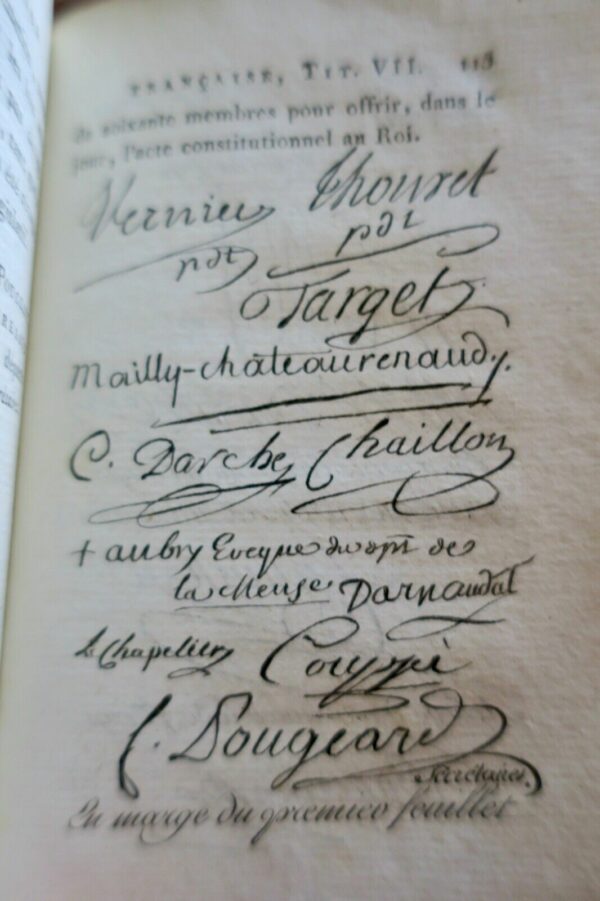 FRANÇAISE, TIT. VII. 113
de soixante membres pour offrir, dans le
jour, l'acte constitutionnel au Roi.
Vernier Thouret
pdt pdt
Target
Mailly-châteaurenaud.
C. Darche, Chaillon
+ aubry Eveque du dpt de
la Meuse Darnaudat
Le Chapelier Couppé
C. Dougeard
Secrétaires.
En marge du premier feuillet